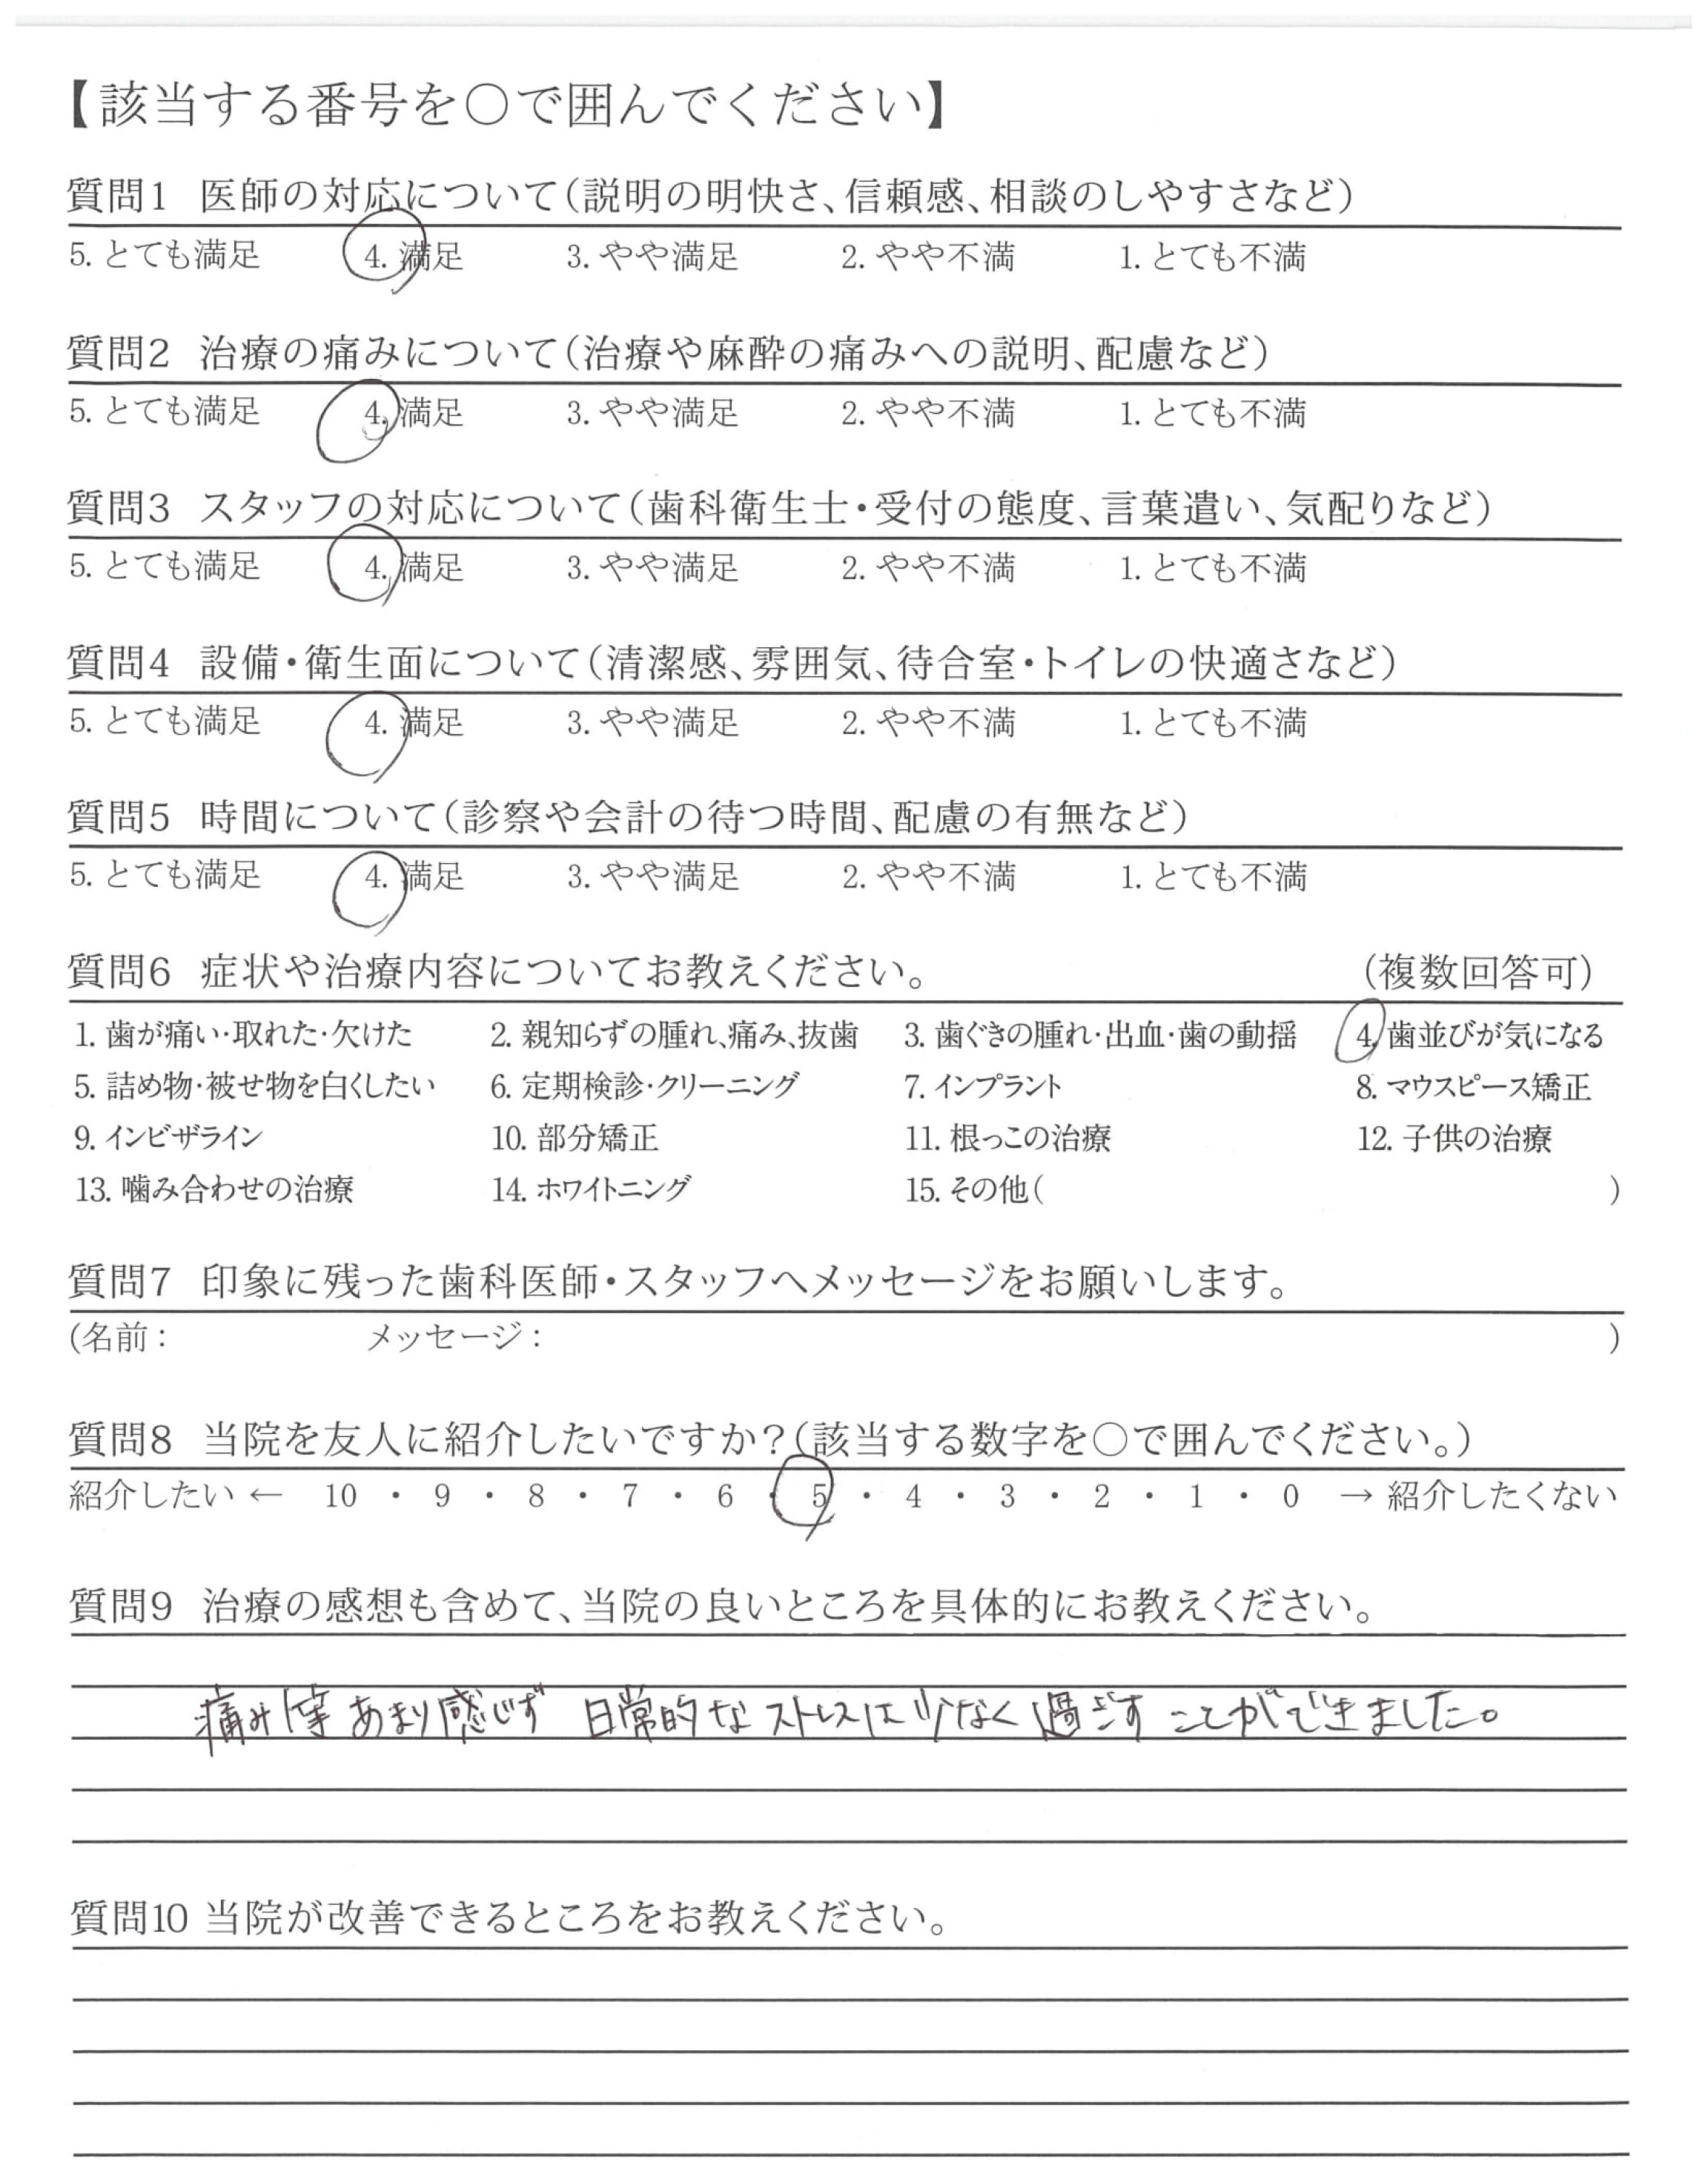 【該当する番号を○で囲んでください】
質問1 医師の対応について(説明の明快さ、信頼感、相談のしやすさなど)
5. とても満足 4. 満足 3. やや満足 2. やや不満 1. とても不満
質問2 治療の痛みについて(治療や麻酔の痛みへの説明、配慮など)
5. とても満足 4. 満足 3. やや満足 2. やや不満 1. とても不満
質問3 スタッフの対応について(歯科衛生士・受付の態度、言葉遣い、気配りなど)
5. とても満足 4. 満足 3. やや満足 2. やや不満 1. とても不満
質問4 設備・衛生面について(清潔感、雰囲気、待合室・トイレの快適さなど)
5. とても満足 4. 満足 3. やや満足 2. やや不満 1. とても不満
質問5 時間について(診察や会計の待つ時間、配慮の有無など)
5. とても満足 4. 満足 3. やや満足 2. やや不満 1. とても不満
質問6 症状や治療内容についてお教えください。 (複数回答可)
1. 歯が痛い・取れた・欠けた 2. 親知らずの腫れ、痛み、抜歯 3. 歯ぐきの腫れ・出血・歯の動揺 4. 歯並びが気になる
5. 詰め物・被せ物を白くしたい 6. 定期検診・クリーニング 7. インプラント 8. マウスピース矯正
9. インビザライン 10. 部分矯正 11. 根っこの治療 12. 子供の治療
13. 噛み合わせの治療 14. ホワイトニング 15. その他( )
質問7 印象に残った歯科医師・スタッフへメッセージをお願いします。
(名前： メッセージ： )
質問8 当院を友人に紹介したいですか?(該当する数字を○で囲んでください。)
紹介したい ← 10 ・ 9 ・ 8 ・ 7 ・ 6 ・ 5 ・ 4 ・ 3 ・ 2 ・ 1 ・ 0 → 紹介したくない
質問9 治療の感想も含めて、当院の良いところを具体的にお教えください。
痛み等あまり感じず 日常的なストレスは少なく過ごすことができました。
質問10 当院が改善できるところをお教えください。